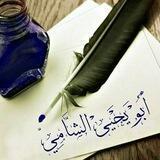 أبو يحيى الشامي